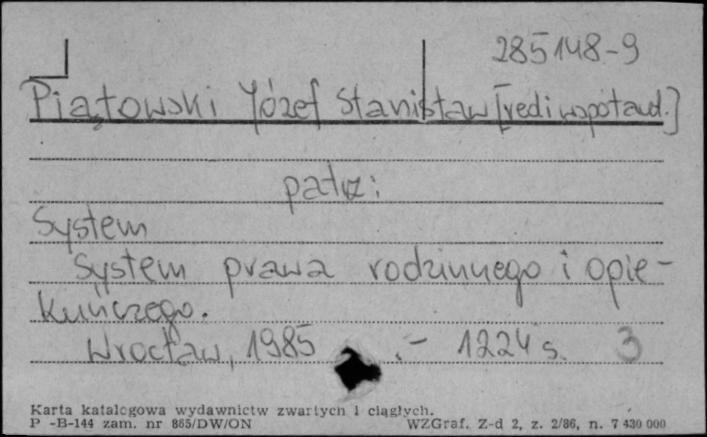 285148-9
Piątowski Józef Stanisław [red i współaut.]
patrz:
System
System prawa rodzinnego i opie-
kuńczego.
Wrocław, 1985 .- 1224 s. 3
Karta katalogowa wydawnictw zwartych i ciągłych.
P -B-144 zam. nr 865/DW/ON WZGraf. Z-d 2, z. 2/86, n. 7 430 000